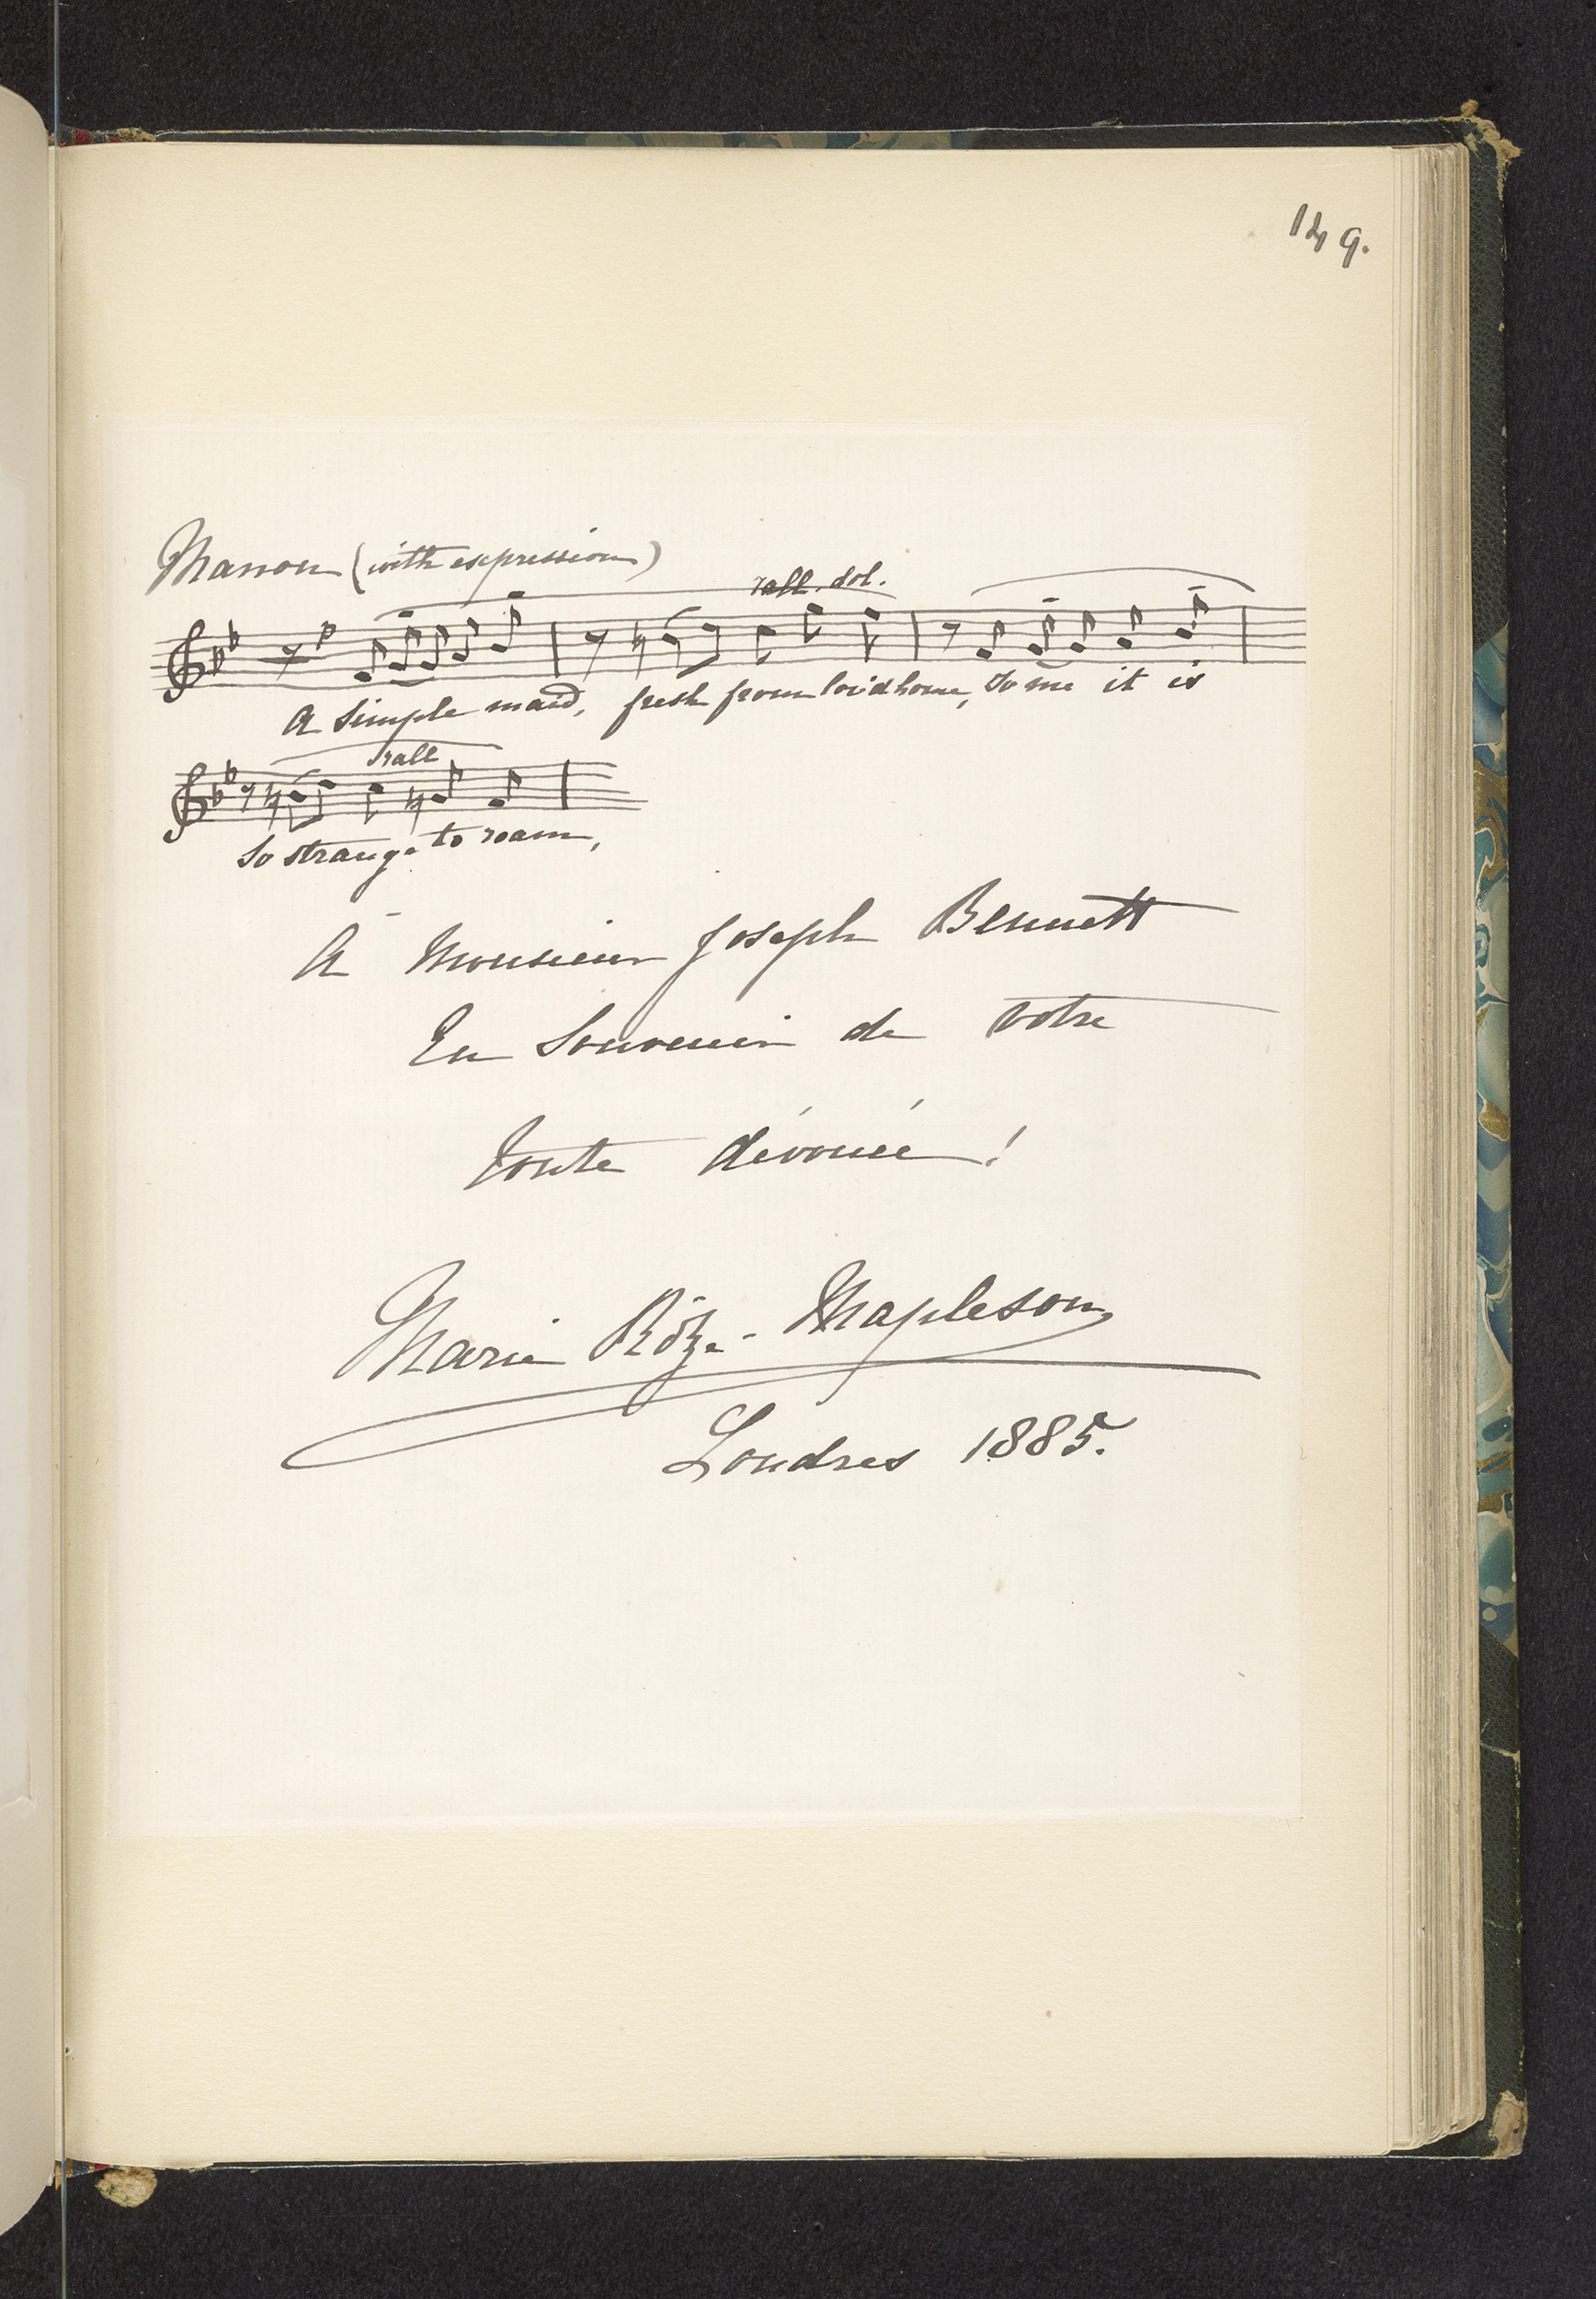 149.
Manon (with expression)
rall. dol.
A simple maid, fresh from lov'd home, to me it is
rall
so strange to roam,
A Monsieur Joseph Bennett
En Souvenir de votre
toute dévouée!
Marie Rôze-Mapleson
Londres 1885.